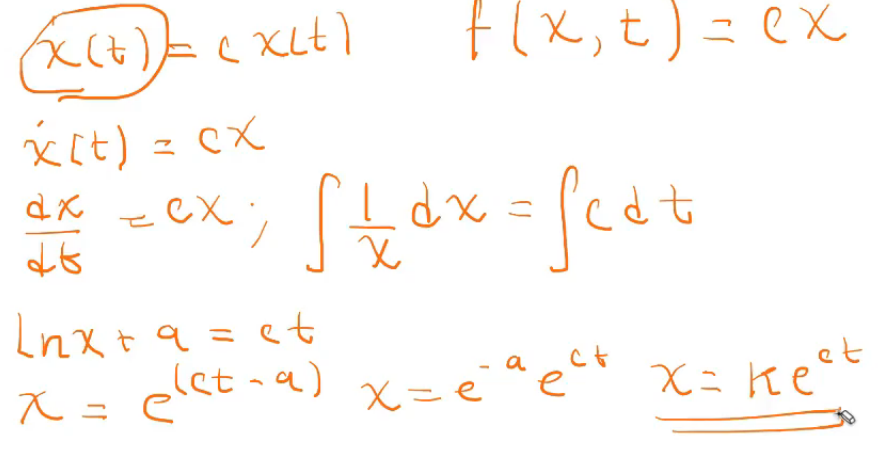 x(t) = c x(t) f(x,t) = cx
ẋ(t) = cx
dx/dt = cx; ∫ 1/x dx = ∫ c dt
lnx + a = ct
x = e^(ct - a) x = e^-a e^ct x = ke^ct